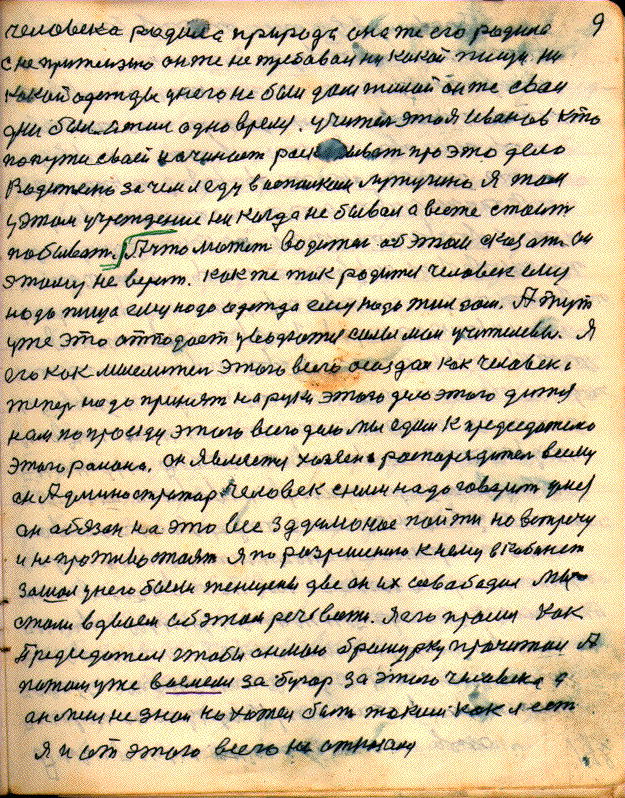 9
человека родила природа она же его родила
с не прителэто он же не требовал ни какой пищи ни
какой одежды у него не был дом жилой он же свои
дни был в этом одно время. учител это я Иванов кто
по пути своей начинает расказыват про это дело
Водителю зачем я еду в
у этом учреждение ни когда не бывал а все же стоит
побыват. А что может водител об этом сказат он
этому не верит. как же так родится человек ему
надо пища ему надо одежда ему надо жил дом. А тут
уже это отподает уводится силы мои учителевы. Я
его как мыслител этого всего создал как человек.
тепер надо принят на руки этого дело этого дитя
нам по проводу этого всего дело мы едим к председателю
этого района. он является хозяен распорядител всему
он Администратар человек с ним надо говорит у нег
он обязан на это все пойти на встречу
и не противостоят я по разрешению к нему в кабинет
зашол у него были женщены две он их совабадил мы
стали вдвоем об этом реч вести. Я его прошу как
Председател чтоби он мою брошурку прочитал А
потом уже взялся за бугор за этого человека я
он мене не знал но хотел быть таким как я ест
я и от этого всего не отказал